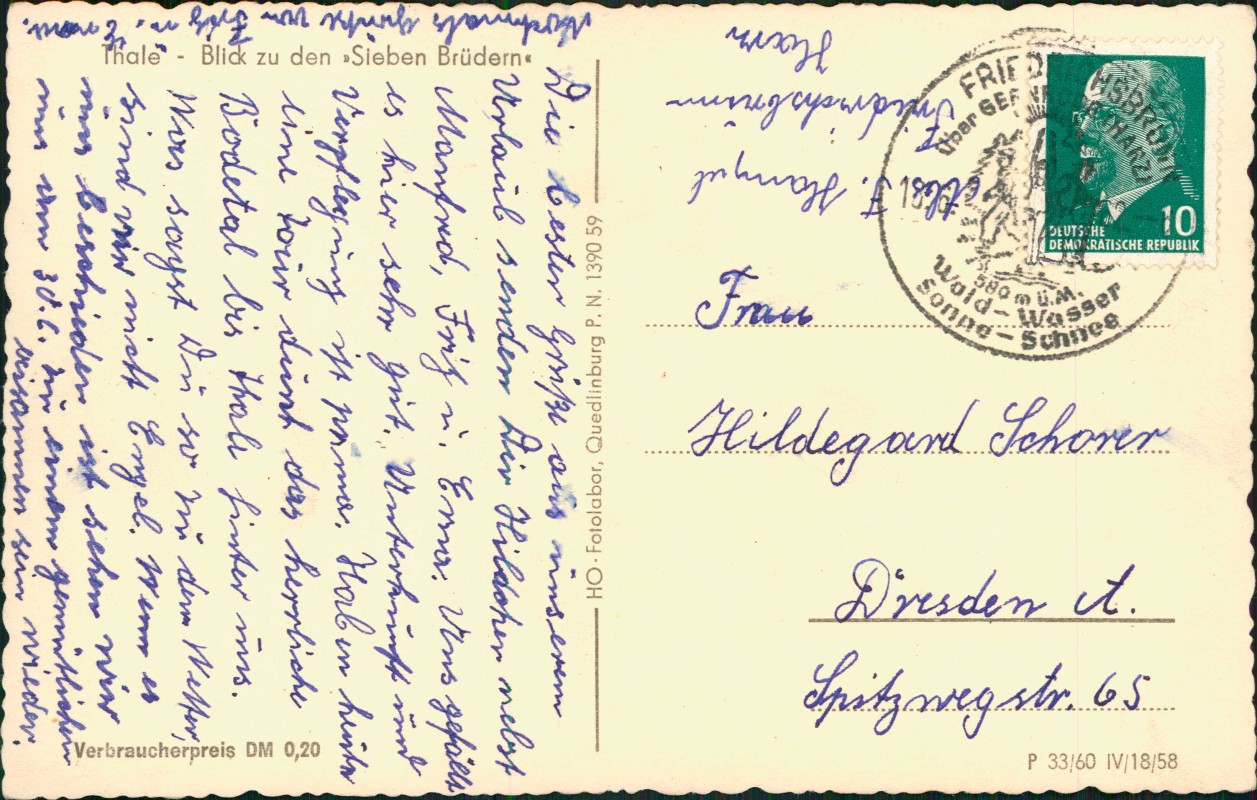 Thale - Blick zu den »Sieben Brüdern«
Die besten Grüße aus unserem
Urlaub senden Dir Hildchen nebst
Manfred, Fritz u. Erna. Uns gefällt
es hier sehr gut. Unterkunft und
Verpflegung ist prima. Haben heute
eine Tour durch das herrliche
Bodetal bis Thale hinter uns.
Was sagst Du so zu dem Wetter,
sind wir nicht Engel. Wenn es
uns beschieden ist sehen wir
uns am 30.6. zu einem gemütlichen
beisammen sein wieder.
Nochmals Grüße von Fritz u. Erna.
HO - Fotolabor, Quedlinburg P. N. 1390 59
Verbraucherpreis DM 0,20
Abs. F.
Friedrichsbrunn
Harz
FRIEDRICHSBRUNN
über GERNRODE (HARZ)
580 m ü. M.
Wald - Wasser
Sonne - Schnee
10
DEUTSCHE
DEMOKRATISCHE REPUBLIK
Frau
Hildegard Schorer
Dresden A.
Spitzwegstr. 65
P 33/60 IV/18/58